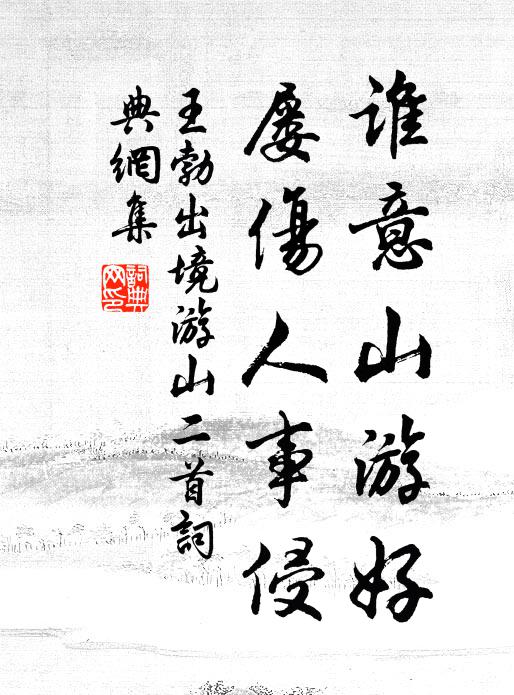 誰意山游好
屡傷人事侵
王勃出境游山二首詞
典網集
詞典网印